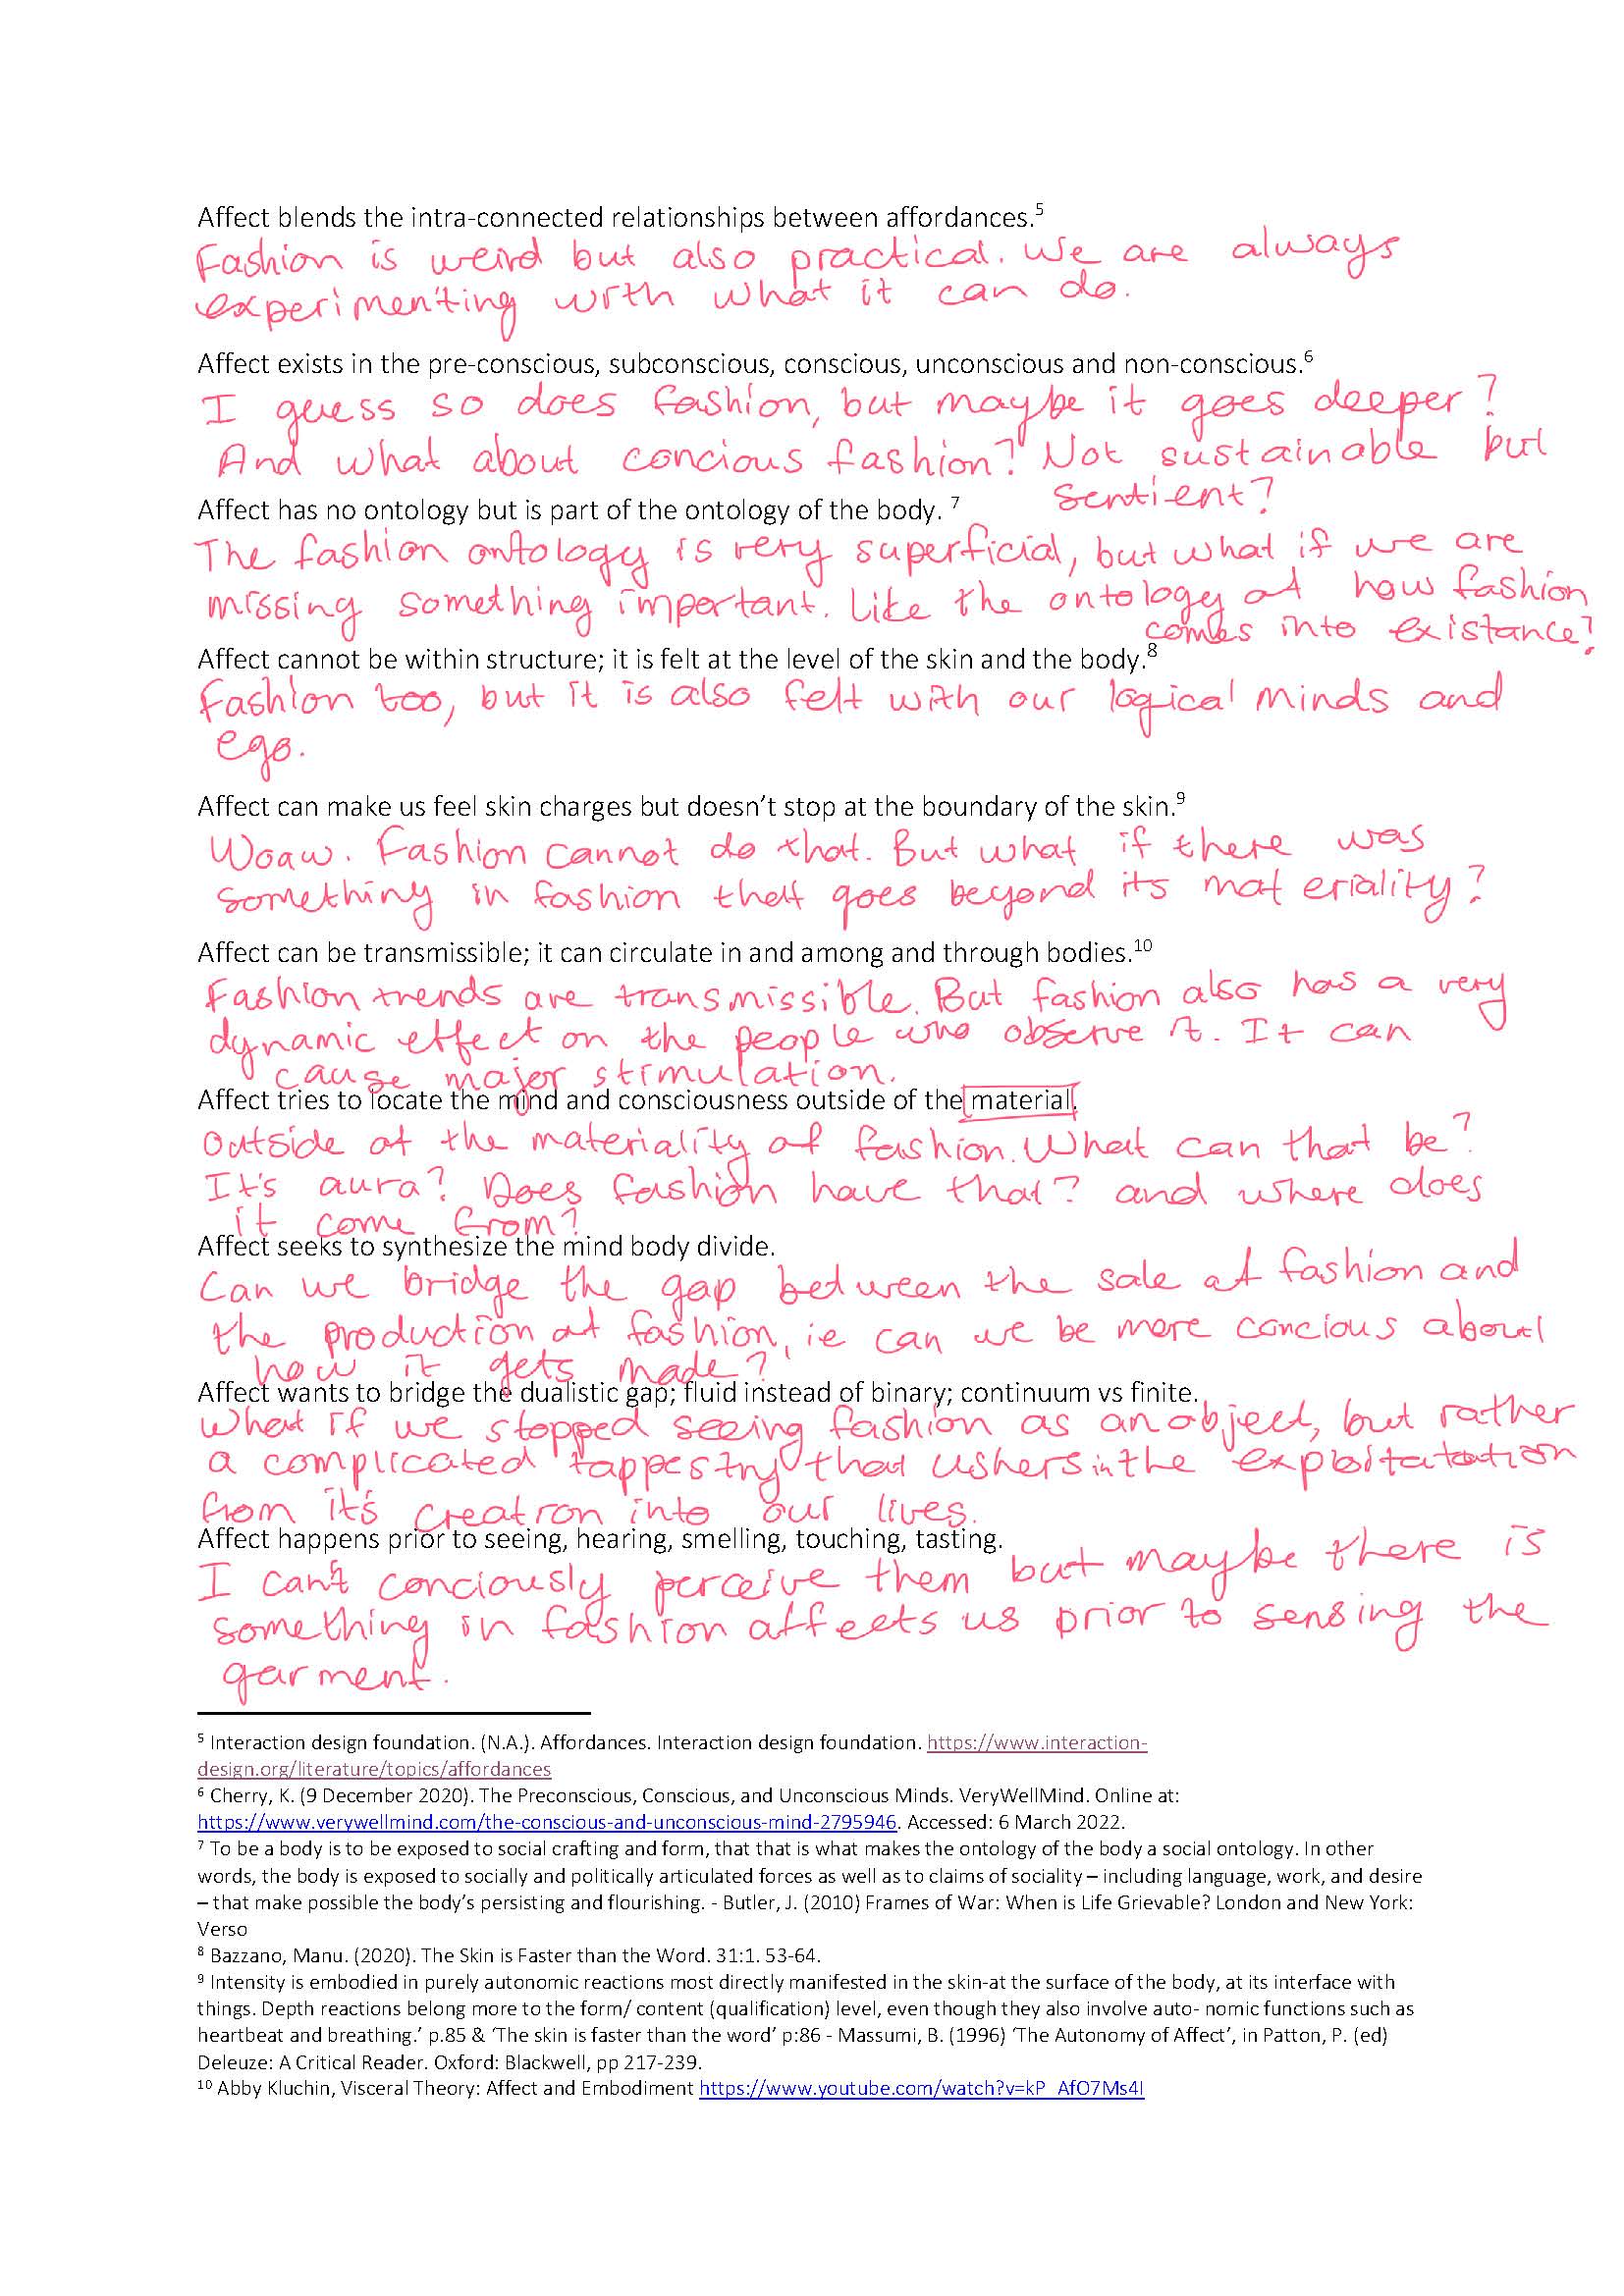 Affect blends the intra-connected relationships between affordances.⁵
Fashion is weird but also practical. We are always
experimenting with what it can do.
Affect exists in the pre-conscious, subconscious, conscious, unconscious and non-conscious.⁶
I guess so does fashion, but maybe it goes deeper?
And what about concious fashion? Not sustainable but
sentient?
Affect has no ontology but is part of the ontology of the body. ⁷
The fashion ontology is very superficial, but what if we are
missing something important. Like the ontology of how fashion
comes into existance?
Affect cannot be within structure; it is felt at the level of the skin and the body.⁸
Fashion too, but it is also felt with our logical minds and
ego.
Affect can make us feel skin charges but doesn’t stop at the boundary of the skin.⁹
Woaw. Fashion cannot do that. But what if there was
something in fashion that goes beyond its materiality?
Affect can be transmissible; it can circulate in and among and through bodies.¹⁰
Fashion trends are transmissible. But fashion also has a very
dynamic effect on the people who observe it. It can
cause major stimulation.
Affect tries to locate the mind and consciousness outside of the material.
Outside of the materiality of fashion. What can that be?
It's aura? Does fashion have that? and where does
it come from?
Affect seeks to synthesize the mind body divide.
Can we bridge the gap between the sale of fashion and
the production of fashion, ie can we be more concious about
how it gets made?
Affect wants to bridge the dualistic gap; fluid instead of binary; continuum vs finite.
What if we stopped seeing fashion as an object, but rather
a complicated tappestry that ushers in the exploitatation
from it's creation into our lives.
Affect happens prior to seeing, hearing, smelling, touching, tasting.
I can't conciously perceive them but maybe there is
something in fashion affects us prior to sensing the
garment.
⁵ Interaction design foundation. (N.A.). Affordances. Interaction design foundation. https://www.interaction-
design.org/literature/topics/affordances
⁶ Cherry, K. (9 December 2020). The Preconscious, Conscious, and Unconscious Minds. VeryWellMind. Online at:
https://www.verywellmind.com/the-conscious-and-unconscious-mind-2795946. Accessed: 6 March 2022.
⁷ To be a body is to be exposed to social crafting and form, that that is what makes the ontology of the body a social ontology. In other
words, the body is exposed to socially and politically articulated forces as well as to claims of sociality – including language, work, and desire
– that make possible the body’s persisting and flourishing. - Butler, J. (2010) Frames of War: When is Life Grievable? London and New York:
Verso
⁸ Bazzano, Manu. (2020). The Skin is Faster than the Word. 31:1. 53-64.
⁹ Intensity is embodied in purely autonomic reactions most directly manifested in the skin-at the surface of the body, at its interface with
things. Depth reactions belong more to the form/ content (qualification) level, even though they also involve auto- nomic functions such as
heartbeat and breathing.’ p.85 & ‘The skin is faster than the word’ p:86 - Massumi, B. (1996) ‘The Autonomy of Affect’, in Patton, P. (ed)
Deleuze: A Critical Reader. Oxford: Blackwell, pp 217-239.
¹⁰ Abby Kluchin, Visceral Theory: Affect and Embodiment https://www.youtube.com/watch?v=kP_AfO7Ms4I